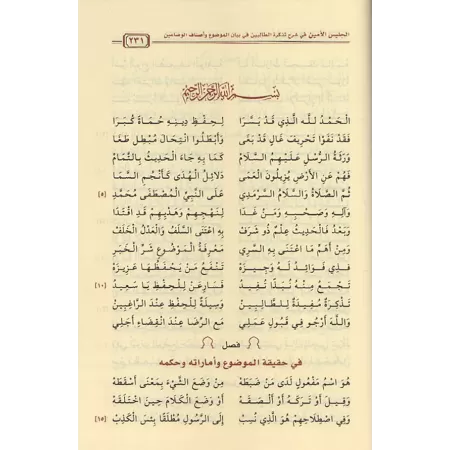 الجليس الأمين في شرح تذكرة الطالبين في بيان الموضوع وأصناف الوضاعين ٢٣١
بسم الله الرحمن الرحيم
الْحَمْدُ لِلَّهِ الَّذِي قَدْ يَسَّرَا لِحِفْظِ دِينِهِ حُمَاةً كُبَرَا
فَقَدْ نَفَوْا تَحْرِيفَ غَالٍ قَدْ بَغَى وَأَبْطَلُوا انْتِحَالَ مُبْطِلٍ طَغَا
وَرَثَةُ الرُّسْلِ عَلَيْهِمُ السَّلَامْ كَمَا بِهِ جَاءَ الْحَدِيثُ بِالتَّمَامْ
فَهُمْ عَنِ الْأَرْضِ يُزِيلُونَ الْعَمَى دَلَائِلُ الْهُدَى كَأَنْجُمِ السَّمَا
ثُمَّ الصَّلَاةُ وَالسَّلَامُ السَّرْمَدِي عَلَى النَّبِيِّ الْمُصْطَفَى مُحَمَّدِ [٥]
وَآلِهِ وَصَحْبِهِ وَمَنْ غَدَا لِنَهْجِهِمْ وَهَدْيِهِمْ قَدِ اقْتَدَا
وَبَعْدُ فَالْحَدِيثُ عِلْمٌ ذُو شَرَفْ بِهِ اعْتَنَى السَّلَفُ وَالْعَدْلُ الْخَلَفْ
وَمِنْ أَهَمِّ مَا اعْتَنَى بِهِ السَّرِي مَعْرِفَةُ الْمَوْضُوعِ شَرِّ الْخَبَرِ
فَذِي فَوَائِدُ لَهُ وَجِيزَهْ تَنْفَعُ مَنْ يَحْفَظُهَا عَزِيزَهْ
تَجْمَعُ مِنْهُ نُبَذًا تُفِيدُ فَسَارِعَنْ لِلْحِفْظِ يَا سَعِيدُ [١٠]
تَذْكِرَةٌ مُفِيدَةٌ لِلطَّالِبِينْ وَسِيلَةٌ لِلْحِفْظِ عِنْدَ الرَّاغِبِينْ
وَاللَّهَ أَرْجُو فِي قَبُولِ عَمَلِي مَعَ الرِّضَا عِنْدَ انْقِضَاءِ أَجَلِي
فصل
في حقيقة الموضوع وأماراته وحكمه
هُوَ اسْمُ مَفْعُولٍ لَدَى مَنْ ضَبَطَهْ مِنْ وَضَعَ الشَّيْءَ بِمَعْنَى أَسْقَطَهْ
وَقِيلَ أَوْ تَرَكَهُ أَوْ أَلْصَقَهْ أَوْ وَضَعَ الْكَلَامَ حِينَ اخْتَلَقَهْ
وَفِي اصْطِلَاحِهِمْ هُوَ الَّذِي نُسِبْ إِلَى الرَّسُولِ مُطْلَقًا بِئْسَ الْكَذِبْ [١٥]